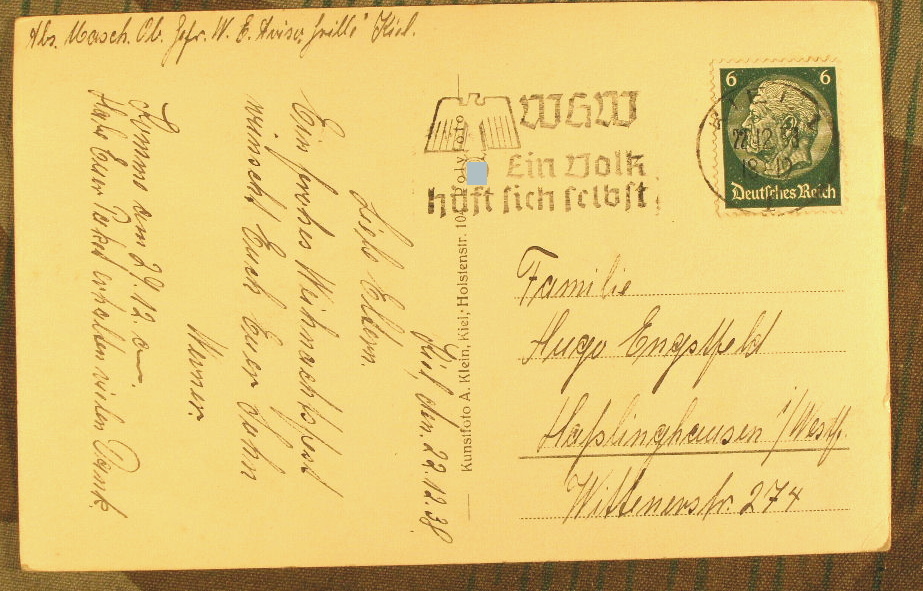 Abs. Masch. Ob. Gefr. W. E. Aviso „Grille" Kiel.
Kiel, den 22.12.38.
Liebe Eltern.
Ein frohes Weihnachtsfest
wünscht Euch Euer Sohn
Werner.
Komme am 29.12. an.
Habe Euer Paket erhalten vielen Dank.
Kunstfoto A. Klein, Kiel, Holstenstr. 104
Polyfoto
WHW
Ein Volk
hilft sich selbst
6 6
Deutsches Reich
KIEL 1
22.12.38
Familie
Hugo Engstfeld
Haßlinghausen i/Westf.
Wittenerstr. 274